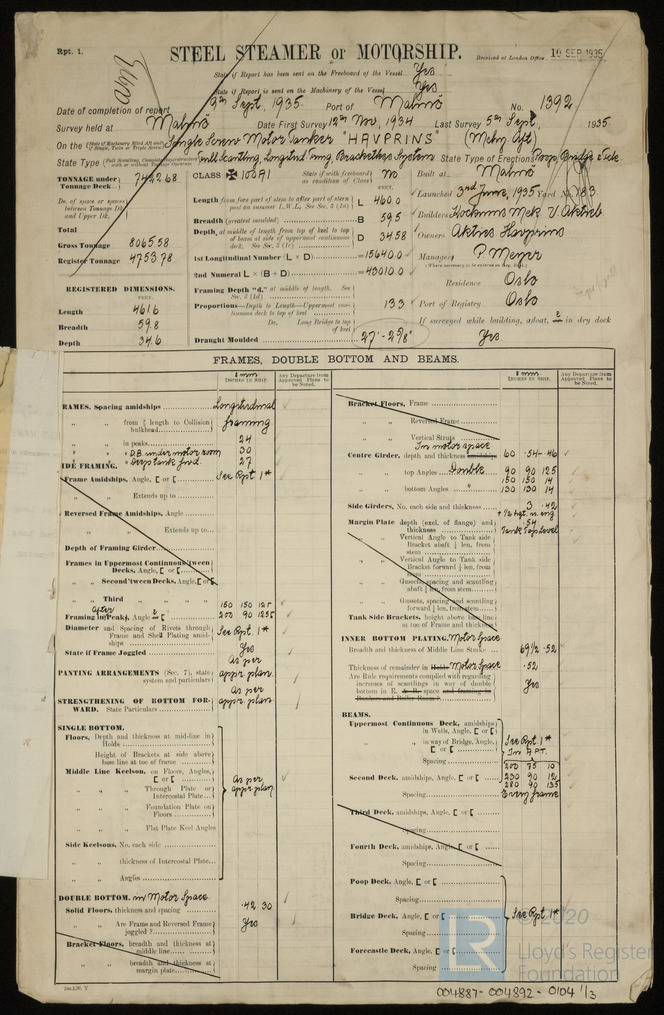 Rpt. 1.
STEEL STEAMER or MOTORSHIP.
Received at London Office 10 SEP 1935
State if Report has been sent on the Freeboard of the Vessel Yes
State if Report is sent on the Machinery of the Vessel Yes
Date of completion of report 9th Sept. 1935. Port of Malmö No. 1392
Survey held at Malmö Date First Survey 12th Nov, 1934 Last Survey 5th Sept, 1935
On the Single Screw Motor Tanker "HAVPRINS" (Mchy Aft)
State Type Full Scantling, Longitud. Fmg, Bracketless System State Type of Erections Poop, Bridge & Fcle
TONNAGE under Tonnage Deck 7422.68
CLASS 100A1 State if with freeboard as condition of Class No
Built at Malmö
Launched 3rd June, 1935 Yard No. 183
Length from fore part of stem to after part of stern post on summer L.W.L. See Sec. 3 (1a) L 460.0
Breadth (greatest moulded) B 59.5
Builders Kockums Mek. V. Aktieb.
Depth, at middle of length from top of keel to top of beam at side of uppermost continuous deck. See Sec. 3 (1c) D 34.58
Owners Akties Havprins
Total
Gross Tonnage 8065.58
Register Tonnage 4753.78
1st Longitudinal Number (L × D) = 15640.0
Managers P. Meyer
2nd Numeral L × (B + D) = 43010.0
Residence Oslo
REGISTERED DIMENSIONS.
FEET.
Framing Depth "d," at middle of length. See Sec. 3 (1d)
Length 461.6
Proportions—Depth to Length—Uppermost continuous deck to top of keel 13.3
Port of Registry Oslo
Breadth 59.8
Do. Long Bridge to top of keel
If surveyed while building, afloat, & in dry dock
Depth 34.6
Draught Moulded 27' - 2 5/8"
Yes
FRAMES, DOUBLE BOTTOM AND BEAMS.
INCHES IN SHIP.
Any Departure from Approved Plans to be Noted.
RAMES. Spacing amidships Longitudinal
" " from 3/5 length to Collision bulkhead framing
" " in peaks 24
" " D.B. under motor room 30
" " Deep tank fwd. 27
IDE FRAMING.
Frame Amidships, Angle, [ or [ See Rpt 1*
" " Extends up to
Reversed Frame Amidships, Angle
" " Extends up to
Depth of Framing Girder
Frames in Uppermost Continuous 'tween Decks, Angle, [ or [
" Second 'tween Decks, Angle, [ or [
" Third " " " "
150 150 125
Framing in After Peak, Angle or [ 200 90 125
Diameter and Spacing of Rivets through Frame and Shell Plating amidships See Rpt 1*
State if Frame Joggled Yes
PANTING ARRANGEMENTS (Sec. 7), state system and particulars As per appr. plan
STRENGTHENING OF BOTTOM FORWARD. State Particulars As per appr. plan
SINGLE BOTTOM.
Floors, Depth and thickness at mid-line in Holds
Height of Brackets at side above base line at toe of frame
Middle Line Keelson, on Floors, Angles, [ or [ As per appr plan
" " Through Plate or Intercostal Plate
" " Foundation Plate on Floors
" " Flat Plate Keel Angles
Side Keelsons, No. each side
" " thickness of Intercostal Plate
" " Angles
DOUBLE BOTTOM. in Motor Space
Solid Floors, thickness and spacing .42 30
" " Are Frame and Reversed Frame joggled? Yes
Bracket Floors, breadth and thickness at middle line
" " breadth and thickness at margin plate
Bracket Floors, Frame
" " Reversed Frame
" " Vertical Struts
In motor space
Centre Girder, depth and thickness 60 .54-.46
" " top Angles Double 90 90 125
150 150 14
" " bottom Angles " 130 130 14
Side Girders, No. each side and thickness 3 .42
Margin Plate depth (excl. of flange) and thickness .54 Tank Top Level
" " Vertical Angle to Tank side Bracket abaft 1/4 len. from stem
" " Vertical Angle to Tank side Bracket forward 1/4 len. from stem
" " Gussets, spacing and scantling abaft 1/4 len. from stem
" " Gussets, spacing and scantling forward 1/4 len. from stem
Tank Side Brackets, height above base line at toe of Frame and thickness
INNER BOTTOM PLATING. Motor Space
Breadth and thickness of Middle Line Strake 69 1/2 .52
Thickness of remainder in Motor Space .52
Are Rule requirements complied with regarding increases of scantlings in way of double bottom in E. & B. space and framing in Bunkers and Boiler Room? Yes
BEAMS.
Uppermost Continuous Deck, amidships in Wells, Angle, [ or [
" " in way of Bridge, Angle, [ or [ See Rpt 1*
In A.P.T.
Spacing 200 75 10
Second Deck, amidships, Angle, [ or [ 230 90 12
280 90 135
Spacing Every frame
Third Deck, amidships, Angle, [ or [
Spacing
Fourth Deck, amidships, Angle, [ or [
Spacing
Poop Deck, Angle, [ or [
Spacing
Bridge Deck, Angle, [ or [ See Rpt 1*
Spacing
Forecastle Deck, Angle, [ or [
Spacing
LR
© 2020
Lloyd's Register
Foundation
004887-004892-0104 1/3